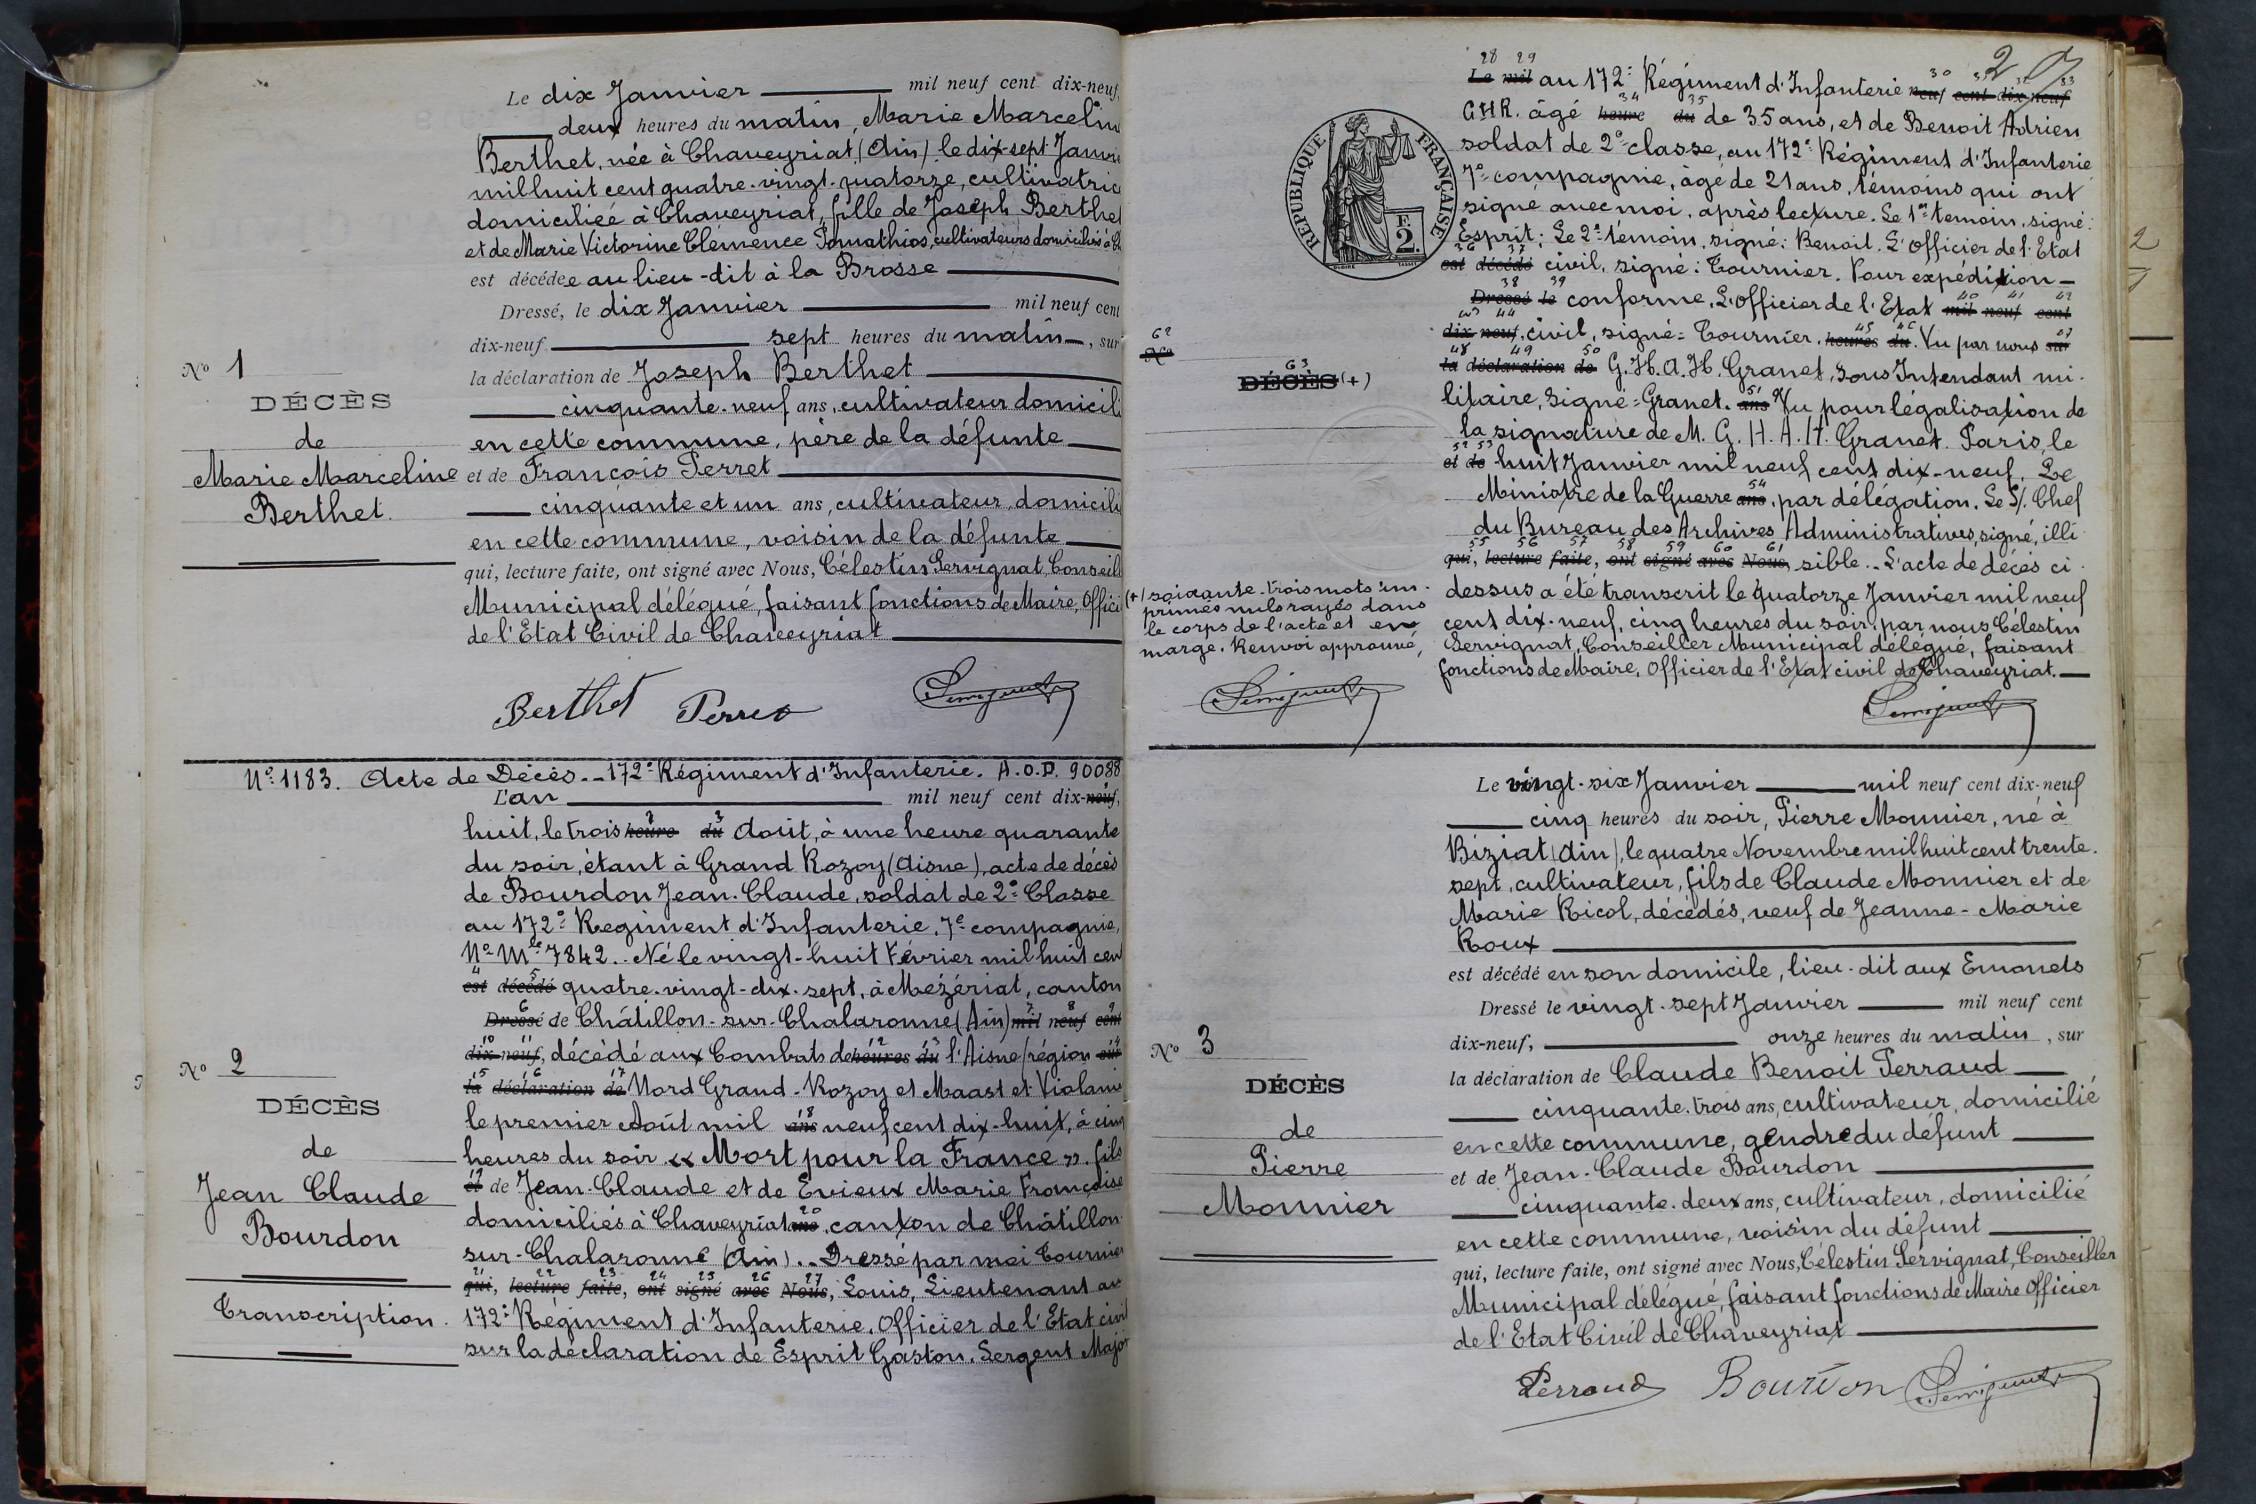 Le dix Janvier mil neuf cent dix-neuf,
deux heures du matin, Marie Marceline
Berthet, née à Chaveyriat (Ain) le dix-sept Janvi
mil huit cent quatre-vingt-quatorze, cultivatric
domiciliée à Chaveyriat, fille de Joseph Berthet
et de Marie Victorine Clémence cultivateurs domiciliés à Ch
est décédée au lieu-dit à la Brosse
Dressé, le dix Janvier mil neuf cent
dix-neuf sept heures du matin, sur
la déclaration de Joseph Berthet
cinquante-neuf ans, cultivateur domicili
en cette commune, père de la défunte
et de François Perret
cinquante et un ans, cultivateur, domicili
en cette commune, voisin de la défunte
qui, lecture faite, ont signé avec Nous, Célestin Servignat, Conseill
Municipal délégué, faisant fonctions de Maire, Offici
de l'Etat Civil de Chaveyriat
No 1
DÉCÈS
de
Marie Marceline
Berthet.
Berthet Perret Servignat
No 1183. Acte de Décès. - 172e Régiment d'Infanterie. A.O.D. 90088
L'an mil neuf cent dix-neuf,
huit, le trois heure 2 du 3 Août, à une heure quarante
du soir, étant à Grand Rozoy (Aisne), acte de décès
de Bourdon Jean-Claude, soldat de 2e Classe
au 172e Regiment d'Infanterie, 7e compagnie,
No Mle 7842.. Né le vingt-huit Février mil huit cen
4 5
est décédé quatre-vingt-dix-sept, à Mézériat, canton
6 7 8 9
Dressé de Châtillon-sur-Chalaronne (Ain) mil neuf cent
10 11 12 13 14
dix-neuf, décédé aux Combats de heures du l'Aisne (région sur
15 16 17
la déclaration de Nord Grand-Rozoy et Maast et Violaine
le premier Août mil 18 ans neuf cent dix-huit, à cinq
heures du soir « Mort pour la France ». fils
19
et de Jean-Claude et de Evieux Marie Françoise
domiciliés à Chaveyriat 20 ans, canton de Châtillon
sur-Chalaronne (Ain)... Dressé par moi Tournier
21 22 23 24 25 26 27
qui, lecture faite, ont signé avec Nous, Louis, Lieutenant au
172e Régiment d'Infanterie, Officier de l'Etat civil
sur la déclaration de Esprit Gaston, Sergent Major
No 2
DÉCÈS
de
Jean Claude
Bourdon
Transcription.
2
28 29
Le mil au 172e Régiment d'Infanterie neuf cent dix-neuf
30 31 32 33
34 35
CHR. âgé heure du de 35 ans, et de Benoit Adrien
soldat de 2e classe, au 172e Régiment d'Infanterie
7e compagnie, âgé de 21 ans, témoins qui ont
signé avec moi, après lecture. Le 1er témoin, signé:
Esprit; Le 2e témoin, signé: Benoit. L'officier de l'Etat
36 37
est décédé civil, signé: Tournier. Pour expédition -
38 39
Dressé le conforme, L'officier de l'Etat mil neuf cent
40 41 42
43 44 45 46 47
dix-neuf, civil, signé = Tournier. heures du. Vu par nous sur
48 49 50
la déclaration de G.H.A.H. Granet, Sous Intendant mi-
litaire, Signé = Granet. 51 ans Vu pour légalisation de
la signature de M. G. H. A. H. Granet. Paris, le
52 53
et de huit Janvier mil neuf cent dix-neuf. Le
Ministre de la Guerre 54 ans, par délégation. Le S/. Chef
du Bureau des Archives Administratives, signé, illi-
55 56 57 58 59 60 61
qui, lecture faite, ont signé avec Nous, sible.. L'acte de décès ci-
dessus a été transcrit le quatorze Janvier mil neuf
cent dix-neuf, cinq heures du soir, par nous Célestin
Servignat, Conseiller Municipal délégué, faisant
fonctions de Maire, Officier de l'Etat civil de Chaveyriat.
RÉPUBLIQUE FRANÇAISE
F.
2.
62
No
63
DÉCÈS (+)
(+) soixante-trois mots im-
primés nuls rayés dans
le corps de l'acte et en
marge. Renvoi approuvé,
Servignat Servignat
Le vingt-six Janvier mil neuf cent dix-neuf
cinq heures du soir, Pierre Monnier, né à
Biziat (Ain), le quatre Novembre mil huit cent trente-
sept, cultivateur, fils de Claude Monnier et de
Marie Ricol, décédés, veuf de Jeanne-Marie
Roux
est décédé en son domicile, lieu-dit aux Emonets
Dressé le vingt-sept Janvier mil neuf cent
dix-neuf, onze heures du matin, sur
la déclaration de Claude Benoit Perraud
cinquante-trois ans, cultivateur, domicilié
en cette commune, gendre du défunt
et de Jean-Claude Bourdon
cinquante-deux ans, cultivateur, domicilié
en cette commune, voisin du défunt
qui, lecture faite, ont signé avec Nous, Célestin Servignat, Conseiller
Municipal délégué, faisant fonctions de Maire Officier
de l'Etat Civil de Chaveyriat
No 3
DÉCÈS
de
Pierre
Monnier
Perraud Bourdon Servignat